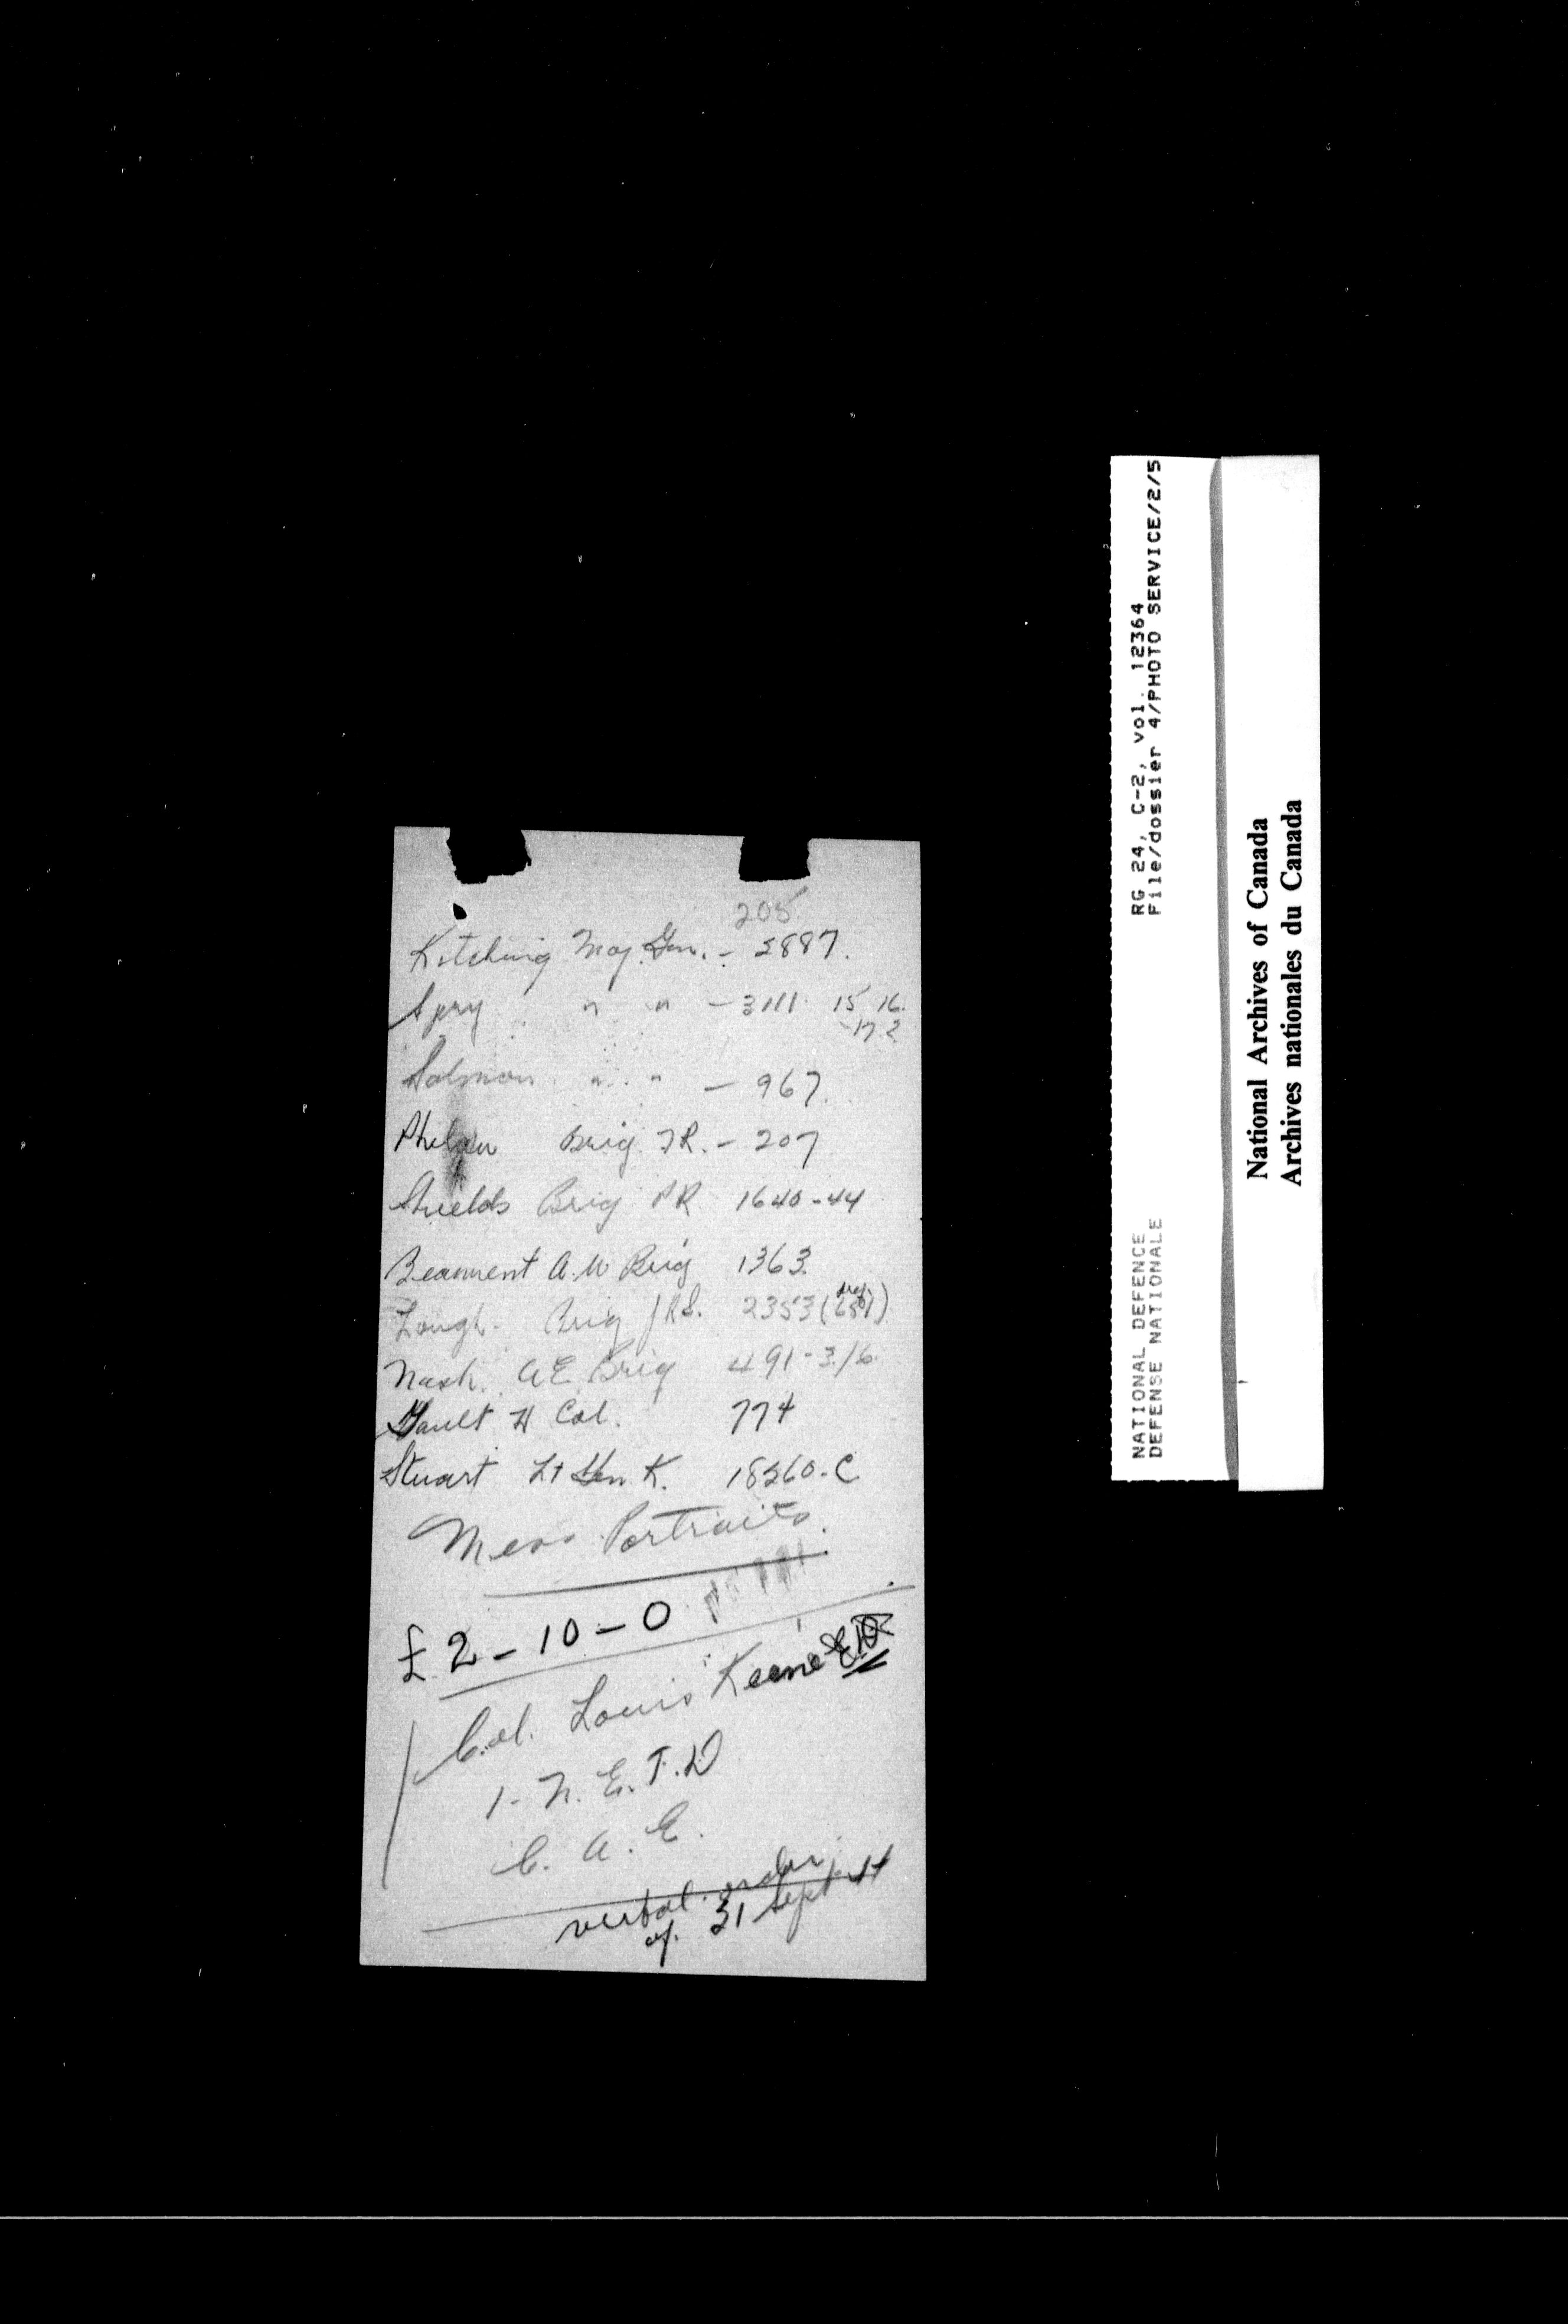 205
Kitching Maj. Gen. - 2887.
Spry " " - 3111 15 16.
-17 ?
Salmon " " - 967.
Phelan Brig. F R. - 207
Shields Brig P R 1640-44
Beaument A. W Brig 1363.
Brig J R S. 2353 (
Nash. A E. Brig 491-3/6
Gault H Col. 774
Stuart Lt Gen K. 18260-C
Mess Portraits.
£ 2 - 10 - 0
Col. Louis Keene E.D
1- N. E. T. D
C. A. E.
verbal order
of. 31 Sept
RG 24, C-2, vol. 12364
File/dossier 4/PHOTO SERVICE/2/5
NATIONAL DEFENCE
DEFENSE NATIONALE
National Archives of Canada
Archives nationales du Canada